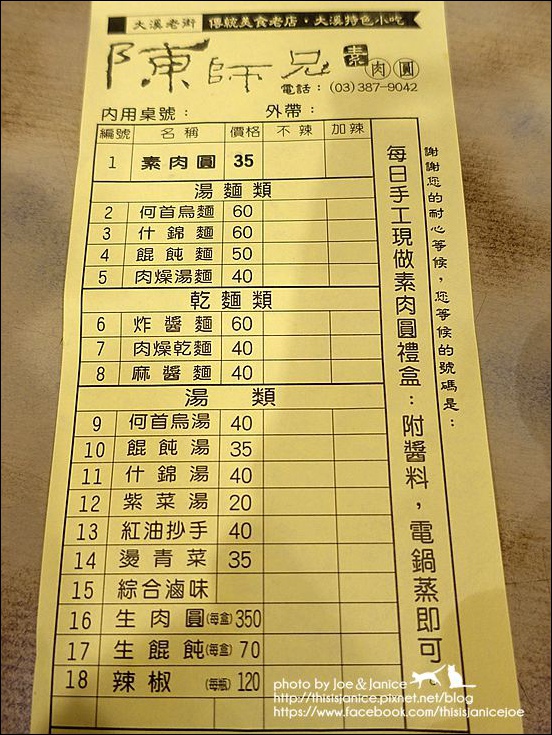 大溪老街 傳統美食老店・大溪特色小吃
陳師兄 素肉圓
電話：(03)387-9042
內用桌號： 外帶：
編號 名稱 價格 不辣 加辣
1 素肉圓 35
湯麵類
2 何首烏麵 60
3 什錦麵 60
4 餛飩麵 50
5 肉燥湯麵 40
乾麵類
6 炸醬麵 60
7 肉燥乾麵 40
8 麻醬麵 40
湯類
9 何首烏湯 40
10 餛飩湯 35
11 什錦湯 40
12 紫菜湯 20
13 紅油抄手 40
14 燙青菜 35
15 綜合滷味
16 生肉圓(每盒) 350
17 生餛飩(每盒) 70
18 辣椒 (每瓶) 120
每日手工現做素肉圓禮盒：附醬料，電鍋蒸即可。
謝謝您的耐心等候，您等候的號碼是：
photo by Joe & Janice
http://thisisjanice.pixnet.net/blog
https://www.facebook.com/thisisjanicejoe